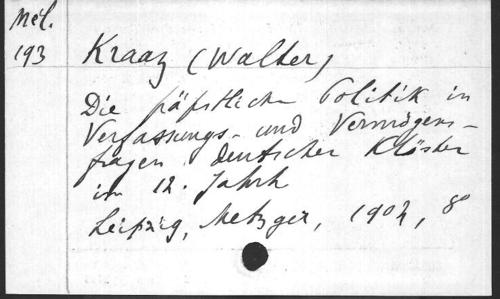 Mél.
193
Kraaz (Walter)
Die päpstliche Politik in
Verfassungs- und Vermögens-
fragen deutscher Klöster
im 12. Jahrh
Leipzig, Metzger, 1902, 8°